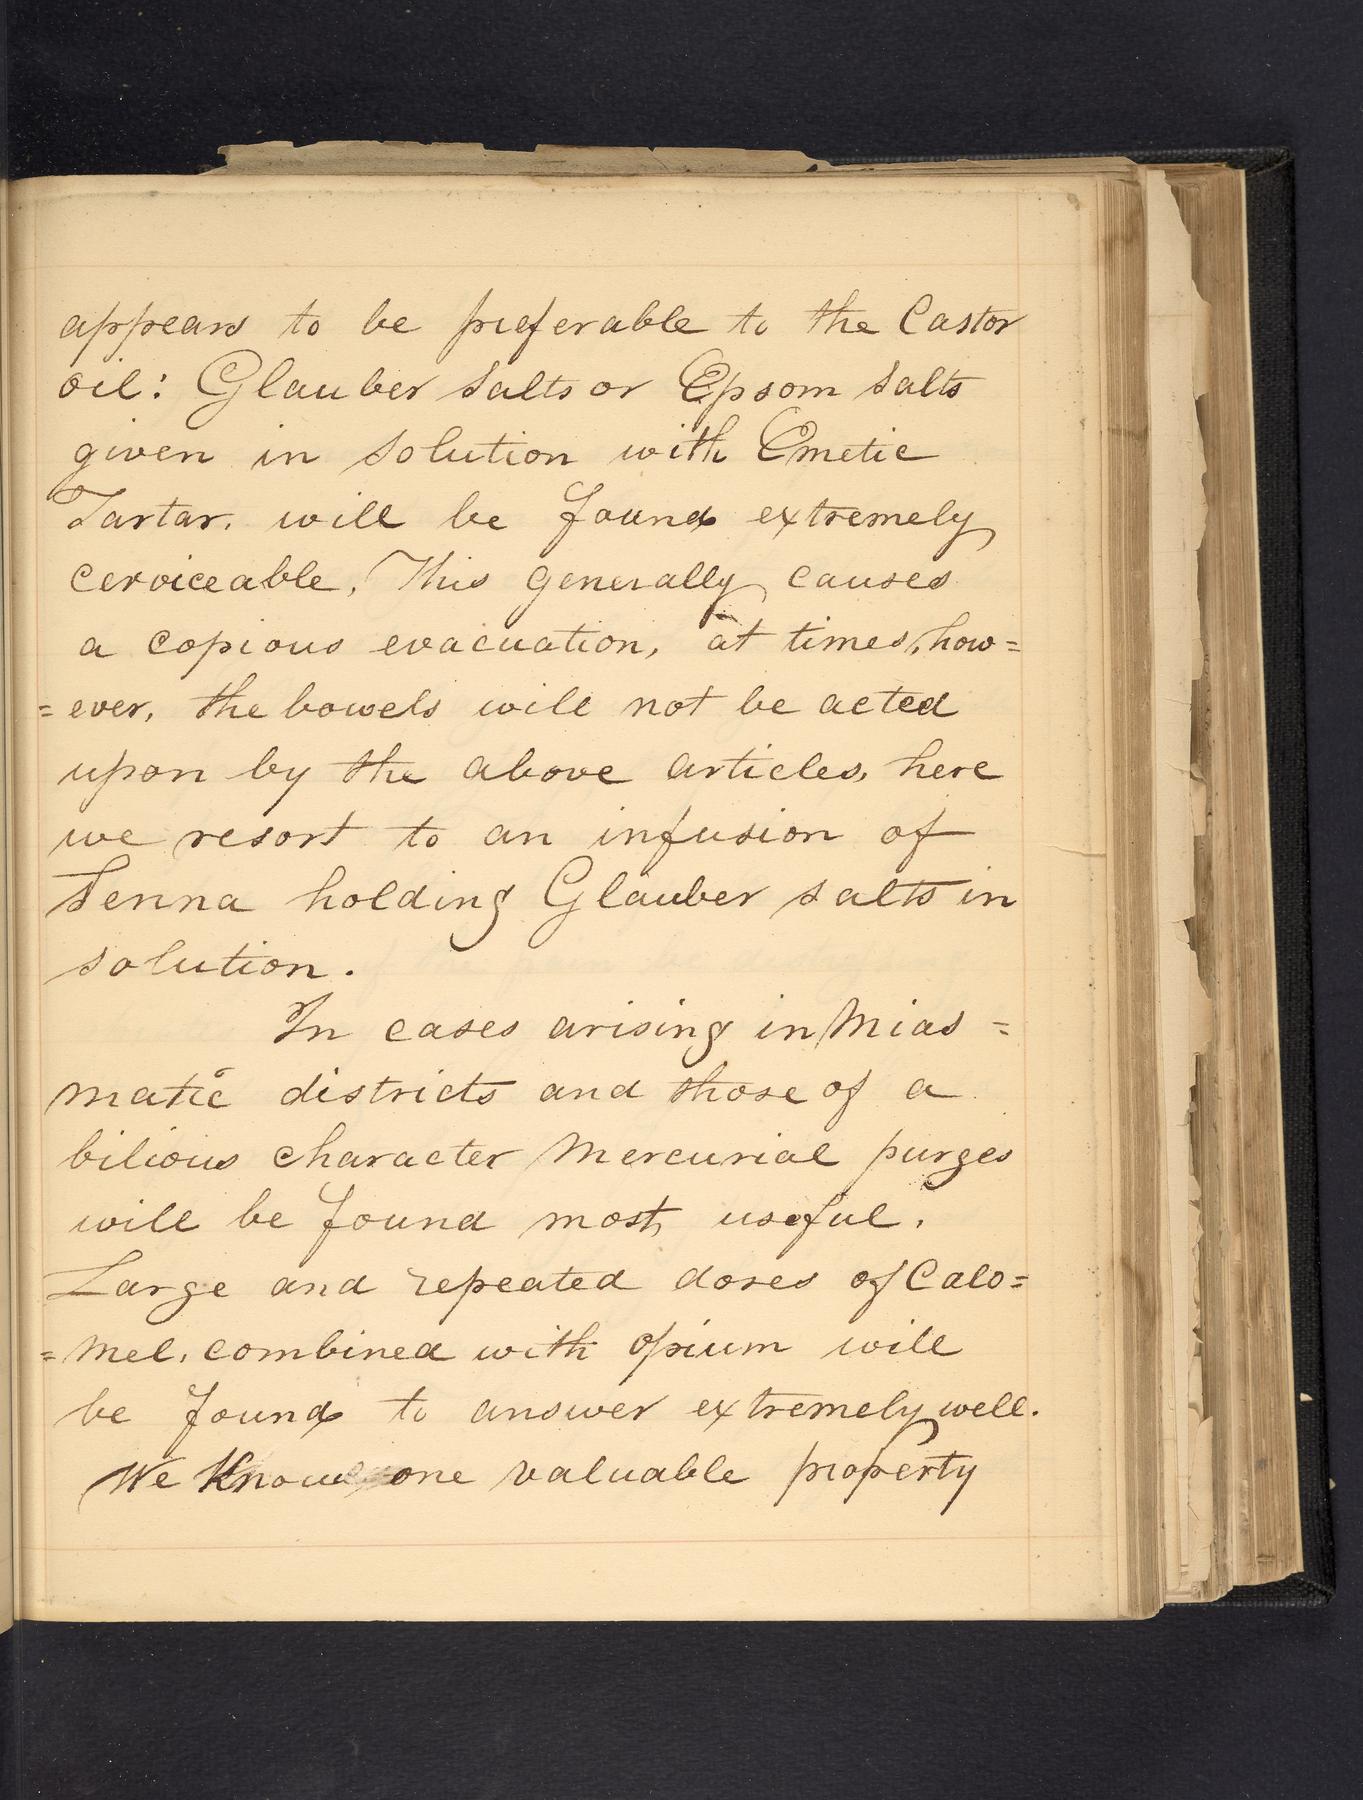 appears to be preferable to the Castor
oil: Glauber salts or Epsom salts
given in solution with Emetic
Tartar. will be found extremely
cerviceable. This generally causes
a copious evacuation, at times, how=
=ever, the bowels will not be acted
upon by the above articles, here
we resort to an infusion of
Senna holding Glauber salts in
solution.
In cases arising in Mias=
matic districts and those of a
bilious character Mercurial purges
will be found most, useful.
Large and repeated doses of Calo=
=mel, combined with opium will
be found to answer extremely well.
We Know one valuable property